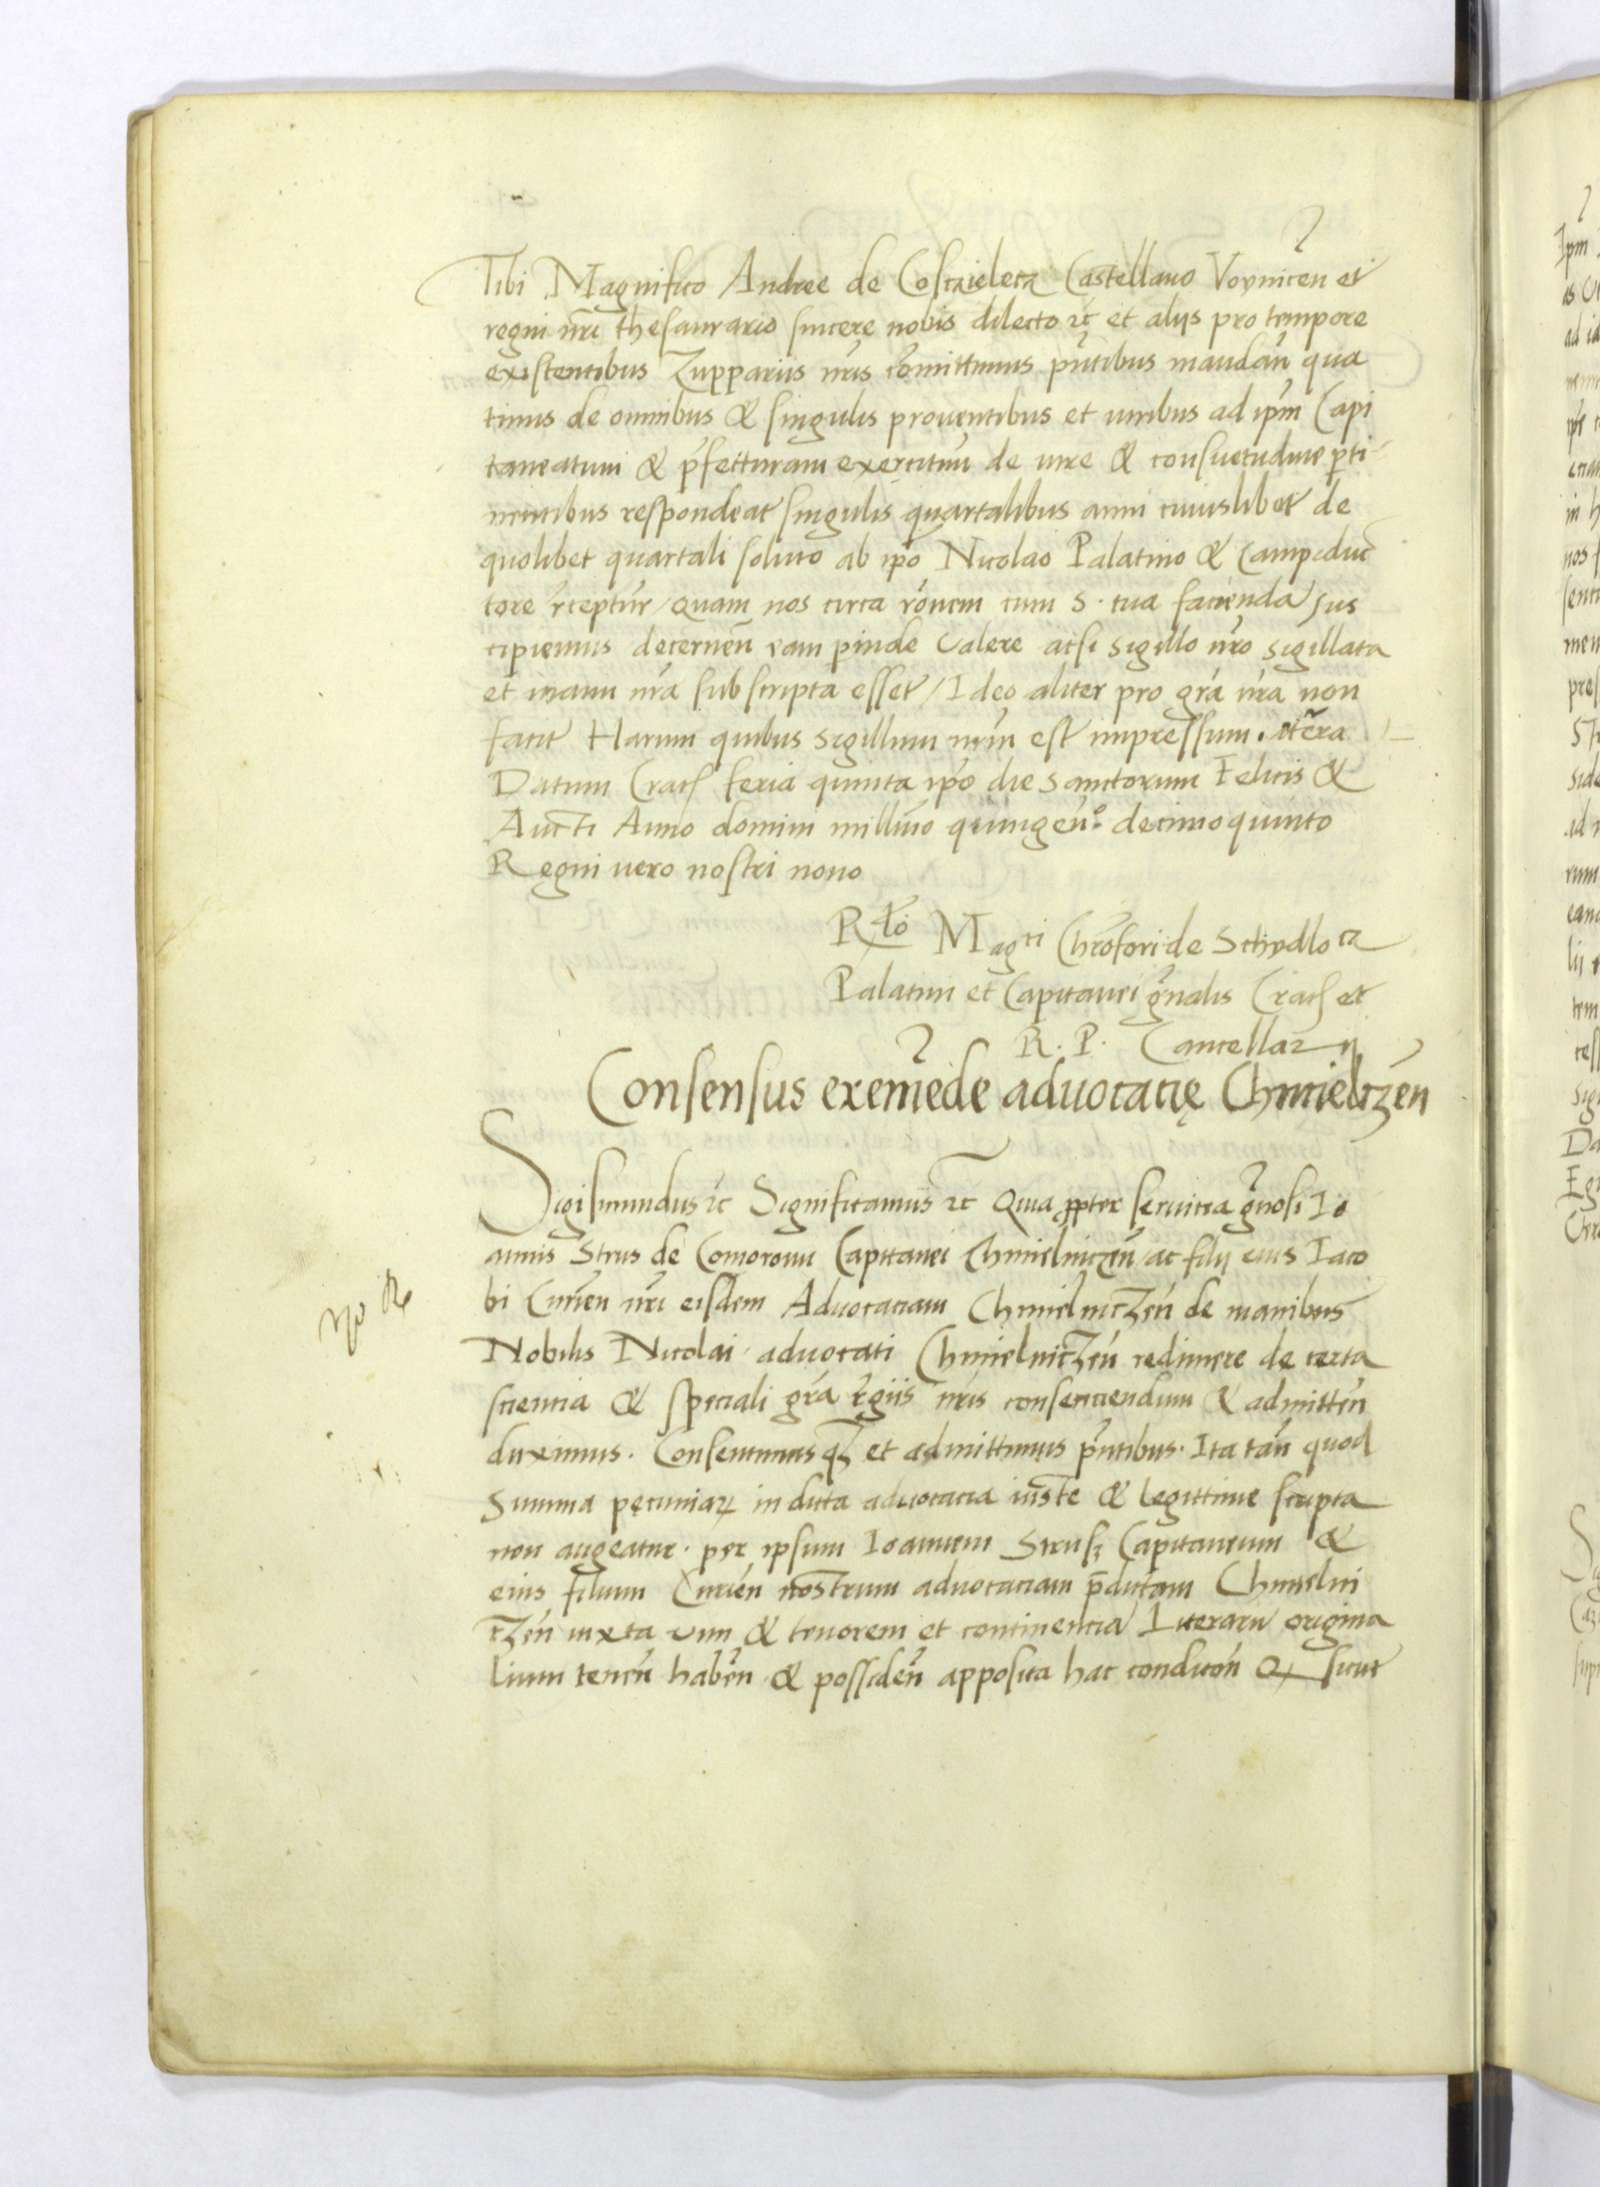 Tibi Magnifico Andree de Coscziełecz Castellano Voynicen et
regni nrī thesaurario sincere nobis dilecto zc et alijs pro tempore
existentibus Zuppariis nrīs cōmittimus pn̄tibus mandān qua
tinus de omnibus & singulis proventibus et iuribus ad ipm̄ Capi
taneatum & p̄fetturam exercitūū de iure & consuetudine pti
nentibus respondeat singulis quartalibus anni cuiuslibet de
quolibet quartali soluto ab ipo Nicolao Palatino & Campiduc
tore rēceptūr / quam nos circa rōnem cum S. tua facienda sus
cipiemus decernēn eam pinde valere acsi sigillo nr̄o sigillata
et manu nr̄a subscripta esset / Ideo aliter pro gr̄a nr̄a non
faciť Harum quibus sigillum nrm̄ est impressum.
Datum Crac feria quinta ipo die sanctorum Felicis &
Aucti Anno domini millmō quingen.º decimo quinto
Regni vero nostri nono
Rtō Magci Chrōfori de Schydlocz
Palatini et Capitanei gn̄alis Crac et
R. P. Cancellarij
Consensus exemēde advocacię Chmielczēn
Sigismundus zc Significamus zc Quia ppter servicia gn̄osi Io
annis Strus de Comorow Capitanei Chmielniczēn ac filij eius Iaco
bi Curien nrī eisdem Advocaciam Chmielniczēn de manibus
Nobilis Nicolai advocati Chmielniczēn redimere de certa
sciencia & speciali gr̄a rēgiis nrīs consenciendum & admittēn
duximus. Consentimusq et admittimus pn̄tibus. Ita tān quod
Summa pecuniar in dicta advocacia iuste & legittime scripta
non augeatur per ipsum Ioannem Strusz Capitaneum &
eius filium Curien nostrum advocaciam p̄dictam Chmielni
czēn iuxta vim & tenorem et continencia Literarū origina
lium tenēn habēn & possidēn apposita hac condicōn Q sicut